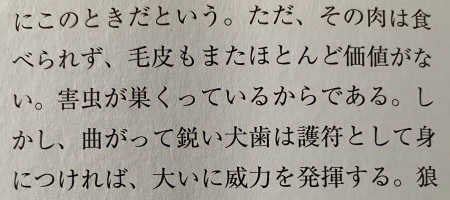 にこのときだという。ただ、その肉は食
べられず、毛皮もまたほとんど価値がな
い。害虫が巣くっているからである。し
かし、曲がって鋭い犬歯は護符として身
につければ、大いに威力を発揮する。狼